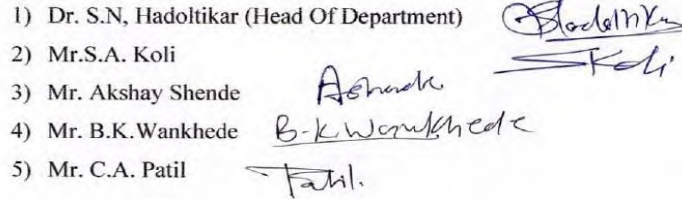 1) Dr. S.N, Hadoltikar (Head Of Department)
2) Mr.S.A. Koli SKoli
3) Mr. Akshay Shende
4) Mr. B.K.Wankhede B-K.Wankhede
5) Mr. C.A. Patil Patil.